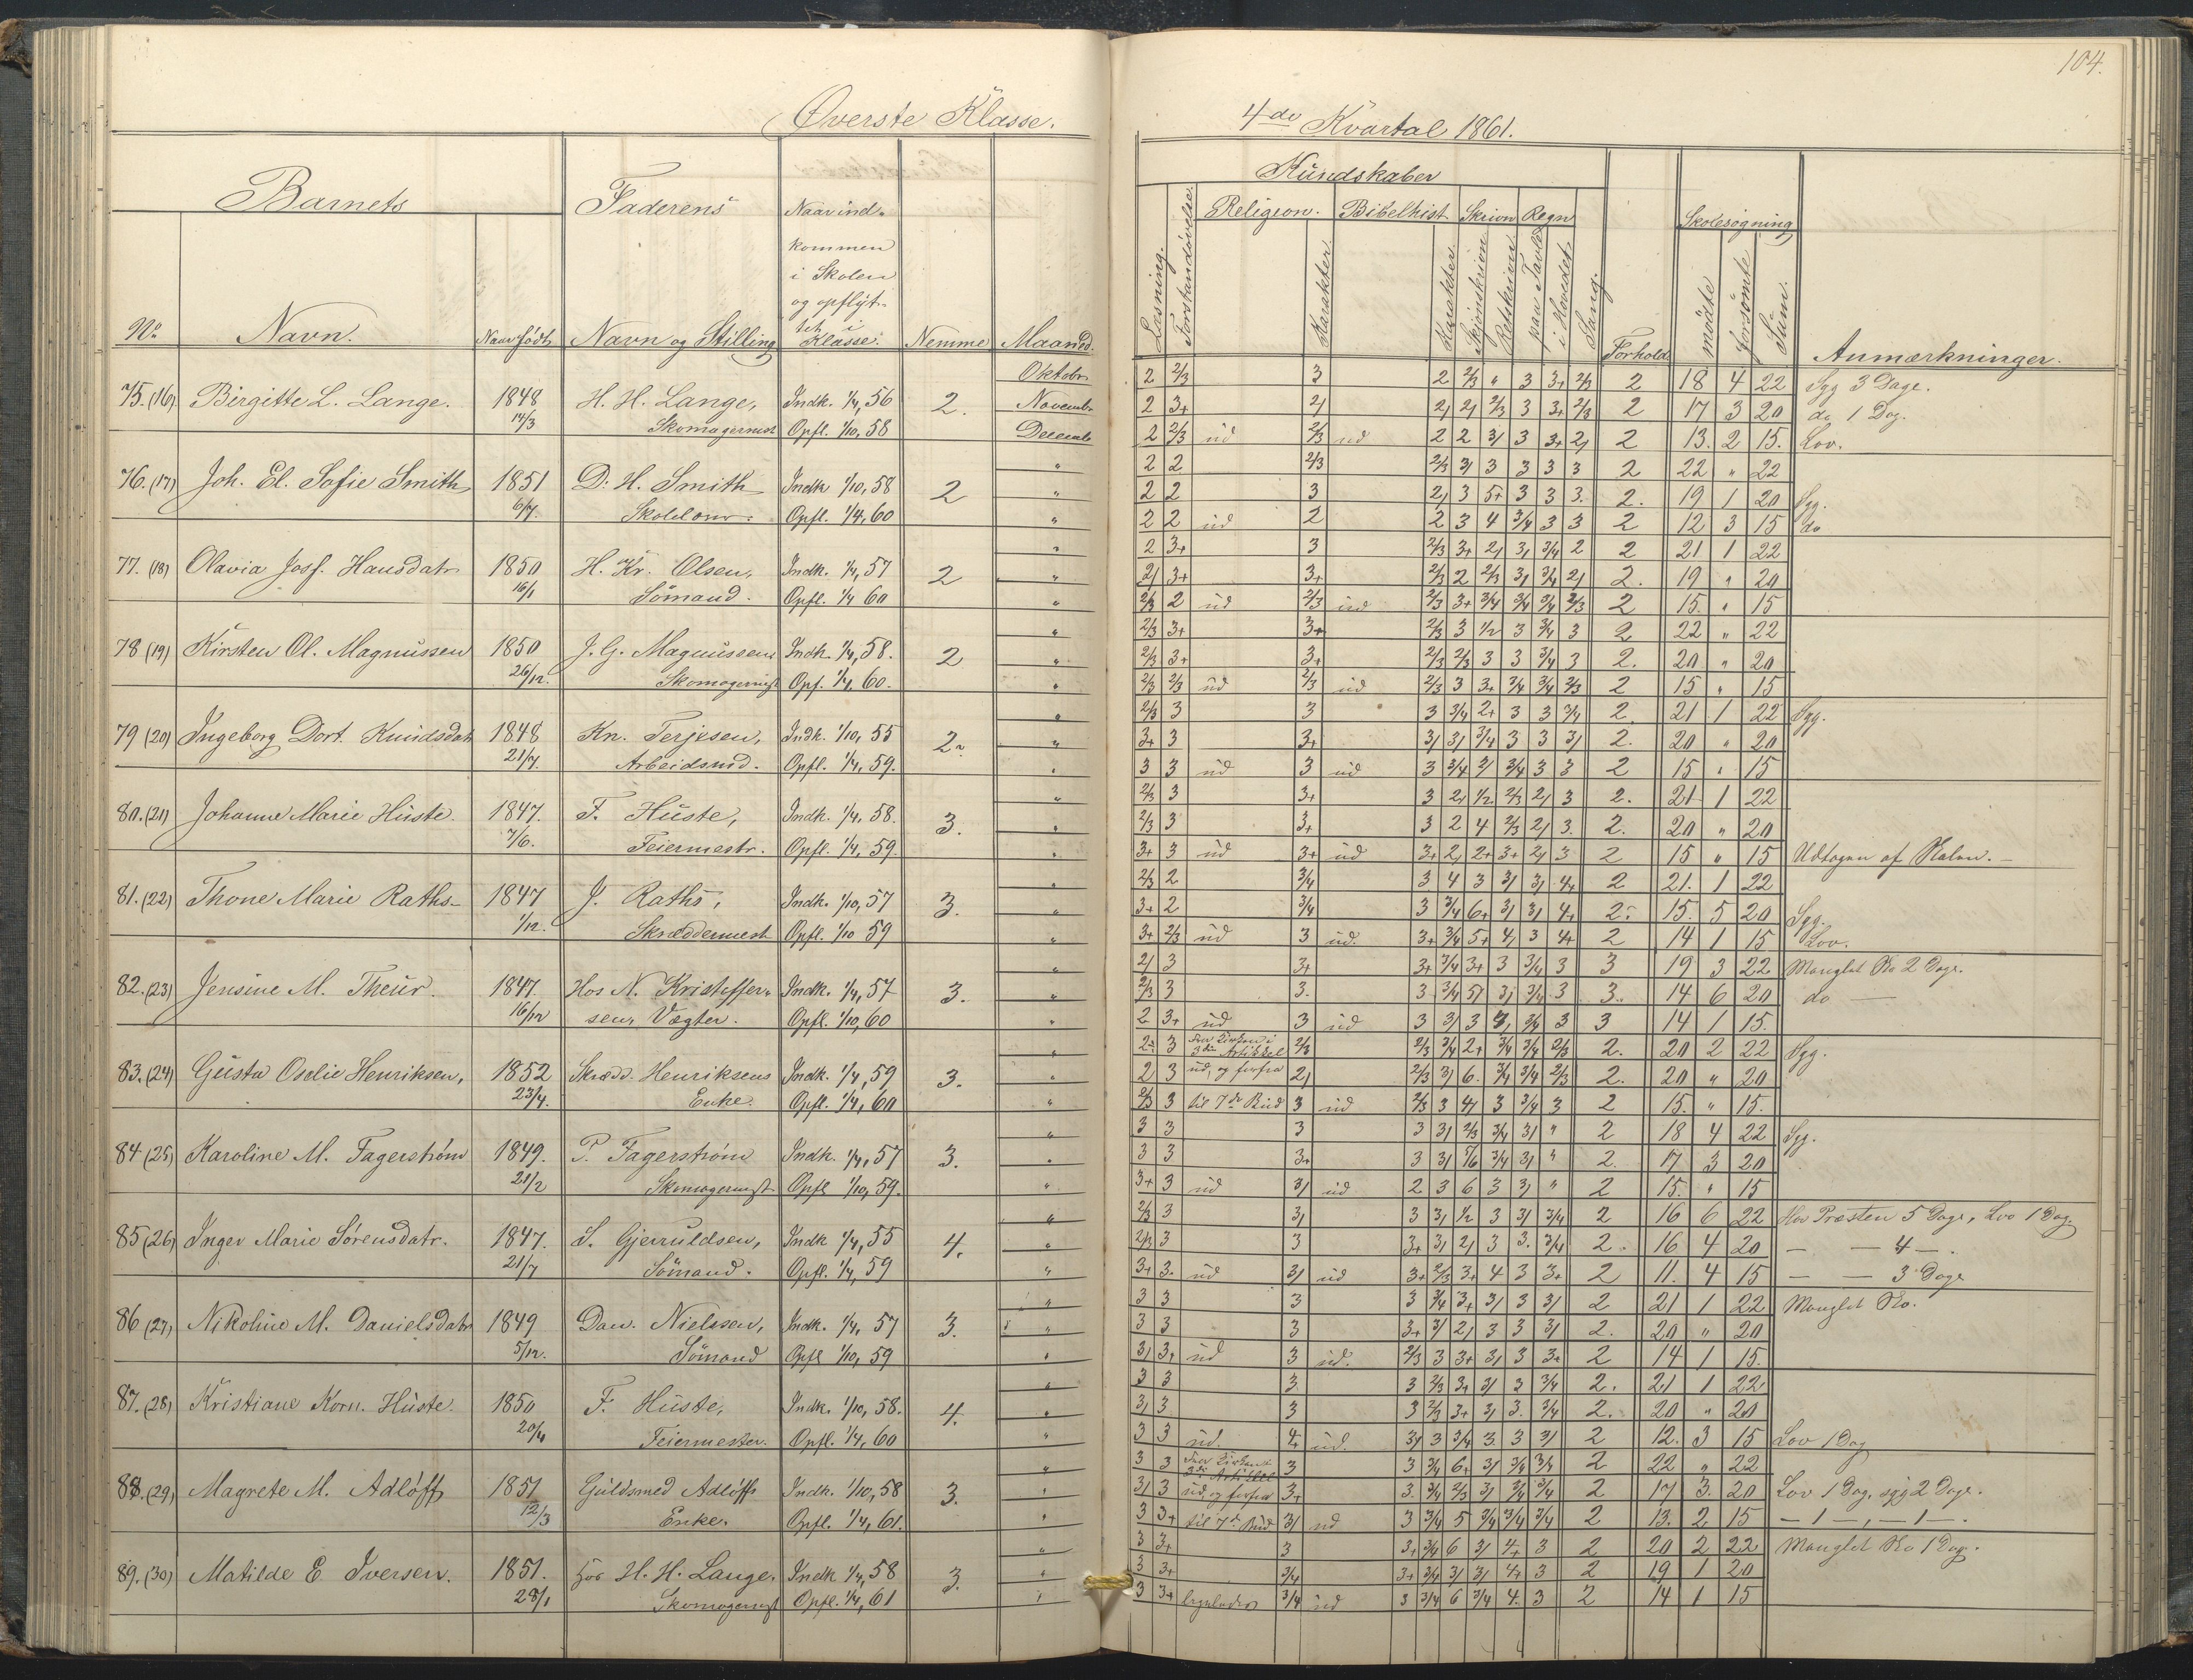 104.
Øverste Klasse.
4de Kvartal 1861.
Barnets
Faderens
Naar ind-
kommen
i Skolen
og opflyt-
tet i
Klasse.
No
Navn.
Naar født
Navn og Stilling
Nemme
Maaned.
Kundskaber
Læsning.
Forstandøvelse.
Religion.
Karakter.
Bibelhist
Karakter.
Skrivn
Skjønskrivn.
Retskrivn.
Regn
paa Tavle
i Hovedet.
Sang.
Forhold
Skolesøgning
mødte
forsømte
Sum.
Anmærkninger.
75. (16) Birgitte L. Lange. 1848 H. H. Lange, Indk. 1/4, 56 2. Oktobr
14/3 Skomagermest Opfl. 1/10, 58 Novembr
Decembr
2 2/3 3 2 2/3 " 3 3+ 2/3 2 18 4 22 Syg 3 Dage.
2 3+ 2/ 2/ 2/ 2/3 3 3+ 2/3 2 17 3 20 do 1 Dag.
2 2/3 ud 2/3 ud 2 2 3/ 3 3+ 2/ 2 13. 2 15. Lov.
76. (17) Joh. El. Sofie Smith 1851 D. H. Smith Indk 1/10, 58 2
6/7. Opfl. 1/4, 60
2 2 2/3 2/3 3/ 3 3 3 3 2 22 " 22
2 2 3 2/ 3 5+ 3 3 3. 2. 19 1 20 Syg.
2 2 ud 2 2 3 4 3/4 3 3 2 12 3 15 do
77. (18) Olavia Josf. Hansdatr 1850 H. Kr. Olsen, Indk. 1/4, 57 2
16/1 Sömand. Opfl. 1/4 60
2 3+ 3 2/3 3+ 2/ 3/ 3/4 2 2 21 1 22
2/ 3+ 3+ 2/3 2 2/3 3/ 3/4 2/ 2. 19 " 20
2/3 2 ud 2/3 ud 2/3 3+ 3/4 3/4 3/4 2/3 2 15. " 15
78 (19) Kirsten Ol. Magnussen 1850 J. G. Magnussens Indk 1/4, 58. 2
26/12. Skomagermst Opf. 1/4, 60.
2/3 3+ 3+ 2/3 3 1/2 3 3/4 3 2 22 " 22
2/3 3+ 3+ 2/3 2/3 3 3 3/4 3 2. 20 " 20
2/3 2/3 ud 2/3 ud 2/3 3 3+ 3/4 3/4 2/3 2 15 " 15
79 (20) Ingeborg Dort. Knudsdatr 1848 Kn. Terjesen, Indk. 1/10, 55 2
21/7. Arbeidsmd. Opfl. 1/4, 59.
2/3 3 3 3 3/4 2+ 3 3 3/4 2. 21 1 22 Syg.
3+ 3 3+ 3/ 3/ 3/4 3 3 3/ 2. 20 " 20
3 3 ud 3 ud 3 3/4 2/ 3/4 3 3 2 15 " 15
80. (21) Johanne Marie Huste. 1847. F. Huste, Indk. 1/4, 58. 3.
7/6. Feiermestr. Opfl. 1/4, 59.
2/3 3 3+ 3 2/ 1/2 2/3 2/ 3 2. 21 1 22
2/3 3 3+ 3 2 4 2/3 2/ 3. 2. 20 " 20
3+ 3 ud 3+ ud 3+ 2/ 2+ 3+ 2/ 3 2 15 " 15 Udtagen af
81. (22) Thone Marie Raths- 1847 J. Raths, Indk. 1/10, 57 3.
1/12. Skræddermest Opfl. 1/10 59
2/3 2 3/4 3 4 3 3/ 3/ 4+ 2 21. 1 22
3+ 2 3/4 3 3/4 6+ 3/ 3/ 4+ 2. 15. 5 20 Syg.
3+ 2/3 ud 3 ud. 3+ 3/4 5+ 4/ 3 4+ 2 14 1 15 Lov.
82. (23) Jensine M. Theur. 1847. Hos N. Kristoffer- Indk. 1/4, 57 3.
16/12 sen, Vægter. Opfl. 1/10, 60
2/ 3 3+ 3+ 3/4 3+ 3 3/4 3 3 19 3 22 Manglet Sko 2 Dage.
2/3 3 3. 3 3/4 5/ 3/ 3/4 3 3. 14 6 20 do —
2 3+ ud 3 ud 3 3/ 3 4/ 3/4 3 3 14 1 15.
83. (24) Gusta Oselie Henriksen, 1852 Skrædd. Henriksens Indk. 1/4, 59 3.
23/4. Enke. Opfl. 1/4, 60
2 3 3die Artikkel 2/3 2/3 3/4 2+ 3/4 3/4 2/3 2. 20 2 22 Syg.
2 3 ud, og forfra 2/ 2/3 3/ 6. 3/4 3/4 2/3 2. 20 " 20
2/3 3 til 7de Bud 3 ud 2/3 3 4/ 3 3/4 3 2 15. " 15.
84 (25) Karoline M. Fagerstrøm 1849. P. Fagerstrøm Indk. 1/4, 57 3.
21/2 Skomagermst Opfl 1/10, 59.
3 3 3 3 3/ 2/3 3/4 3/ " 2 18 4 22 Syg.
3 3 3+ 3 3/ 5/6 3/4 3/ " 2. 17 3 20
3+ 3 ud 3/ ud 2 3 6 3 3/ " 2 15. " 15
85 (26) Inger Marie Sørensdatr. 1847. S. Gjeruldsen, Indk 1/4, 55 4.
21/7 Sömand. Opfl. 1/4, 59
2/3 3 3/ 3 3/ 1/2 3 3/ 3/4 2 16 6 22 Hos Præsten 5 Dage, Lov 1 Dag.
2/3 3 3 3+ 3/ 2/ 3 3. 3/4 2. 16 4 20 — — 4 — .
3+ 3. ud 3/ ud 3+ 2/3 3+ 4 3 3+ 2 11. 4 15 — — 3 Dage
86 (27) Nikoline M. Danielsdatr 1849 Dan. Nielssen, Indk. 1/4, 57 3.
5/12. Sömand Opfl 1/10, 59
3 3 3 3 3/4 3+ 3/ 3 3/ 2 21 1 22 Manglet Sko.
3 3 3 3+ 3/ 2/ 3 3 3/ 2. 20 " 20
3/ 3+ ud 3 ud. 2/3 3 3+ 3/ 3 3+ 2 14 1 15.
87. (28) Kristiane Korn. Huste. 1850 F. Huste, Indk. 1/10, 58. 4.
20/4 Feiermester. Opfl. 1/4, 60
3 3 3. 3 2/3 3+ 3/ 3 3/4 2. 21 1 22
3/ 3 3 3 2/3 3+ 3/ 3. 3/4 2. 20 " 20
3 3 ud. 4+ ud. 3/ 3 3/4 3. 3 3/ 2 12. 3 15 Lov 1 Dag
88. (29) Magrete M. Adløff 1851 Guldsmed Adløffs Indk. 1/10, 58 3.
12/3 Enke. Opfl. 1/4, 61.
3 3 3die Artikkel 3 3 3/4 6+ 3/ 3/4 3/4 2 22 " 22
3/ 3 ud og forfra 3+ 3. 3/4 2/3 3/ 3/4 3/4 2 17 3. 20 Lov 1 Dag, syg 2 Dage.
3 3+ til 7de Bud 3/ ud 3 3/4 5 3/4 3/4 3/4 2 13. 2 15 — 1 —, — 1 — .
89. (30) Matilde E Iversen. 1851. hos H. H. Lange, Indk 1/4, 58 3.
28/1 Skomagermst Opfl. 1/4, 61
3 3+ 3 3+ 3/4 6 3/ 4+ 3 2 20 2 22 Manglet Sko 1 Dag.
3 3+ 3/4 3+ 3/4 3/ 3/ 4+ 3 2 19 1 20
3 3+ 3/4 ud 3 3/4 6 3/4 4. 3 2 14 1 15